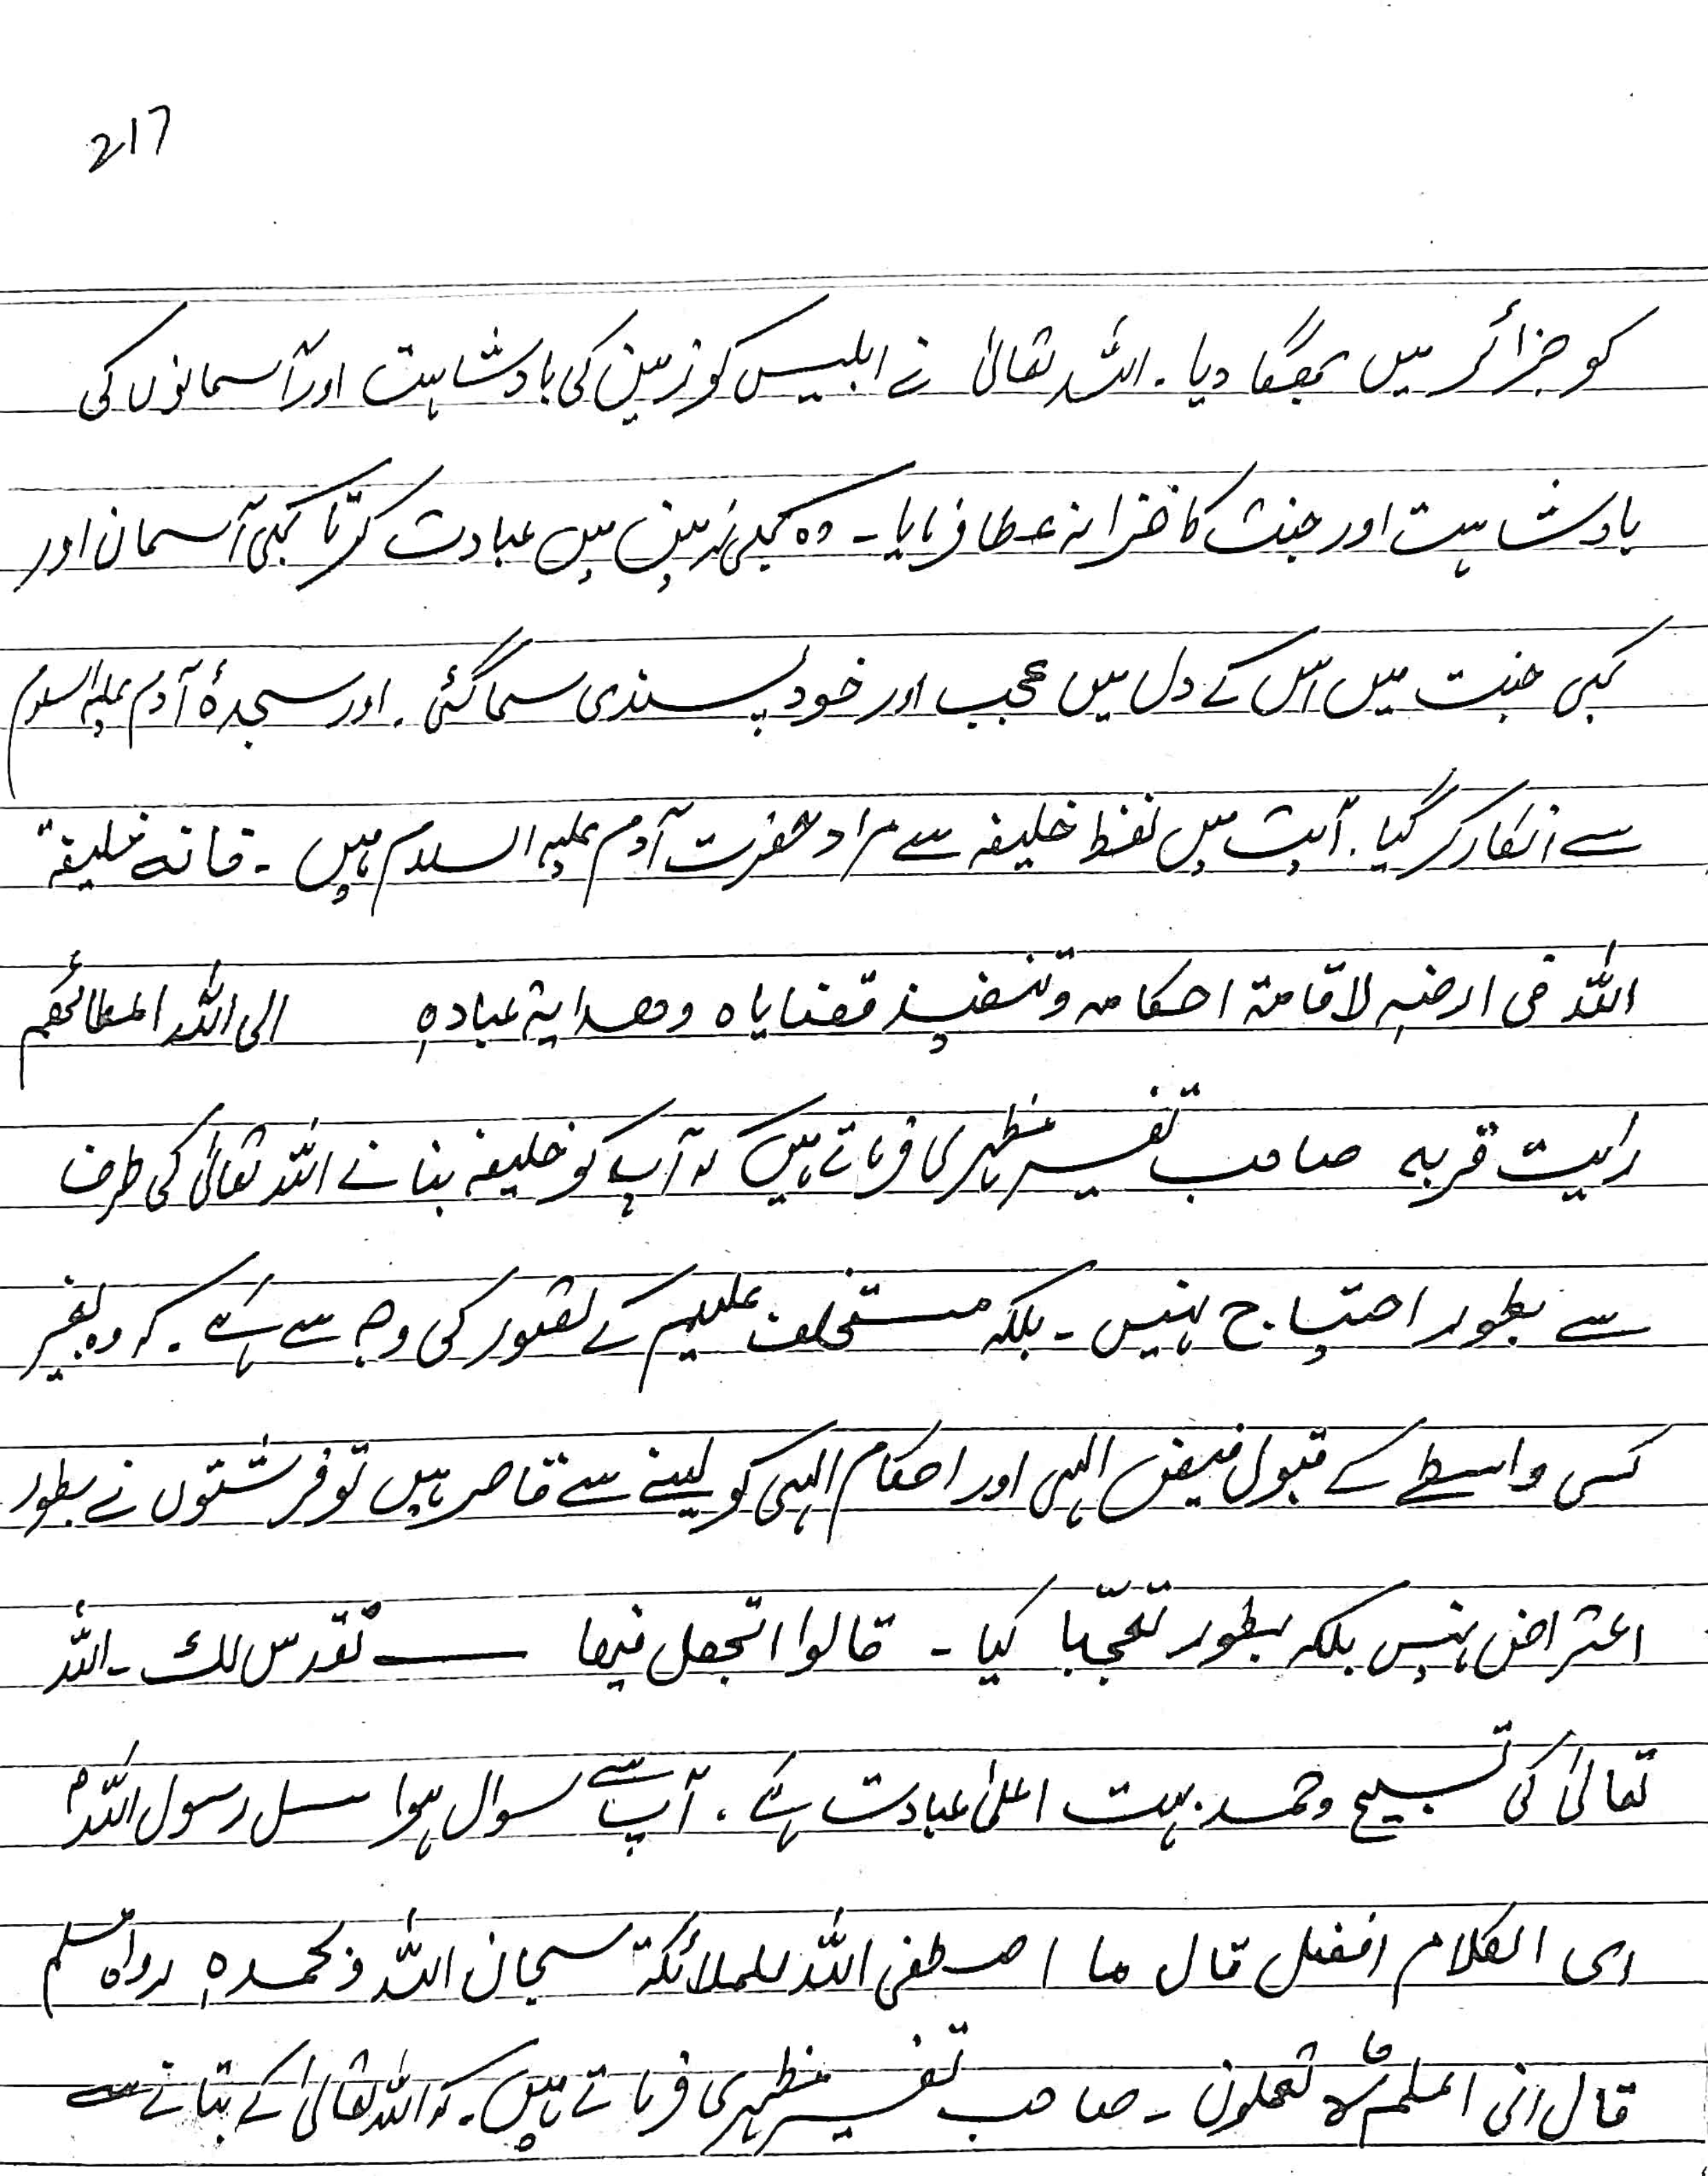 217
کو جزائر میں بھگا دیا۔ اللہ تعالیٰ نے ابلیس کو زمین کی بادشاہت اور آسمانوں کی
بادشاہت اور جنت کا خزانہ عطا فرمایا۔ وہ کبھی زمین میں عبادت کرتا کبھی آسمان اور
کبھی جنت میں اس کے دل میں عجب اور خود پسندی سما گئی۔ اور سجدۂ آدم علیہ السلام
سے انکار کر گیا۔ آیت میں لفظ خلیفہ سے مراد حضرت آدم علیہ السلام ہیں۔ فانہ خلیفۃ
اللہ فی ارضہٖ لاقامۃ احکامہ وتنفیذ قضایاہ وھدایۃ عبادہٖ الی اللہ
صاحب تفسیر مظہری فرماتے ہیں کہ آپ کو خلیفہ بنانے اللہ تعالیٰ کی طرف
سے بطور احتیاج نہیں۔ بلکہ مستخلف علیہم کے قصور کی وجہ سے ہے۔ کہ وہ بغیر
کسی واسطے کے قبول فیض الہی اور احکام الہی کو لینے سے قاصر ہیں تو فرشتوں نے بطور
اعتراض نہیں بلکہ بطور تعجّبا کیا۔ قالوا اتجعل فیھا ــــ نقدس لك۔ اللہ
تعالیٰ کی تسبیح وحمد بہت اعلیٰ عبادت ہے۔ آپ سے سوال ہوا سل رسول اللہؐ
ای الکلام افضل قال ما اصطفی اللہ للملائکۃ سبحان اللہ وبحمدہٖ رواہ مسلم
قال انی اعلم ما لا تعلمون۔ صاحب تفسیر مظہری فرماتے ہیں۔ کہ اللہ تعالیٰ کے بتانے سے